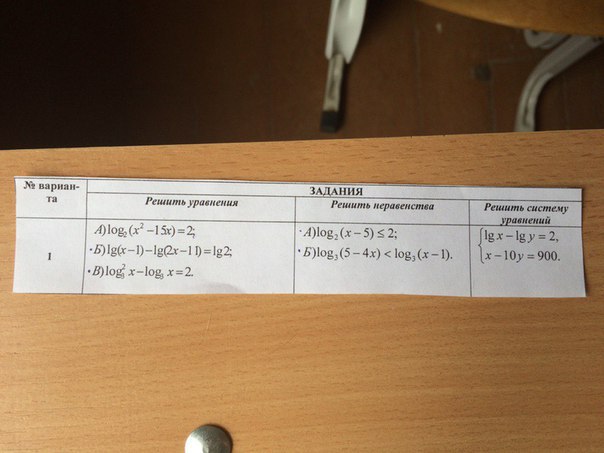 № вариан-
та
ЗАДАНИЯ
Решить уравнения
Решить неравенства
Решить систему
уравнений
1
А) log₂(x² −15x) = 2;
•Б) lg(x−1)−lg(2x−11)=lg2;
•В) log₃² x−log₃ x = 2.
·А) log₂(x−5) ≤ 2;
•Б) log₃(5−4x) < log₃(x−1).
{lg x − lg y = 2,
x −10y = 900.